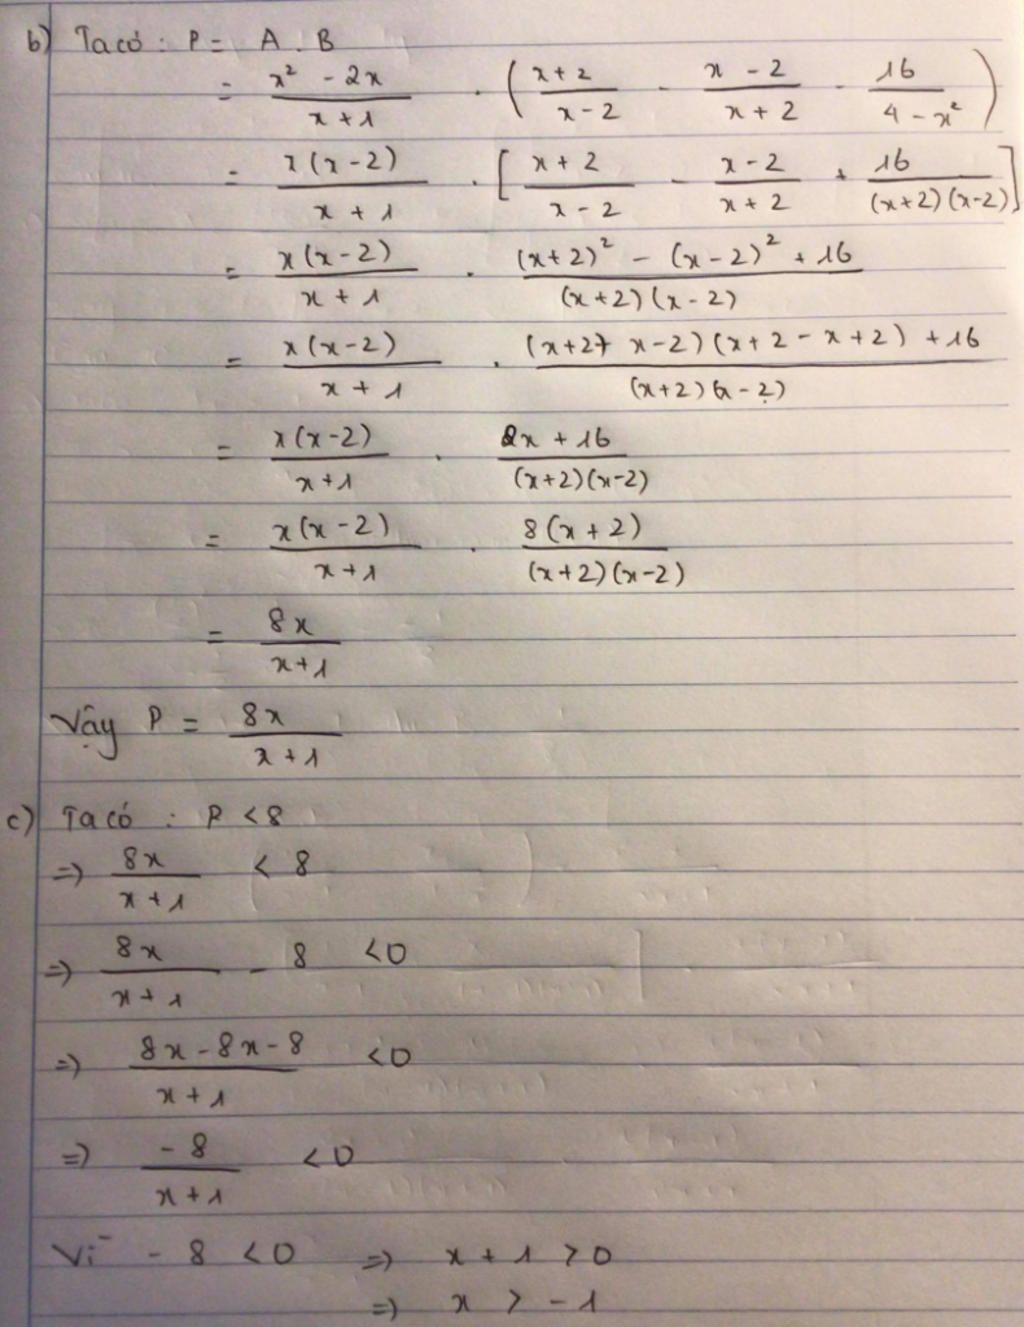 b) Ta có : P = A . B
= \frac{x² - 2x}{x + 1} . ( \frac{x + 2}{x - 2} - \frac{x - 2}{x + 2} - \frac{16}{4 - x²} )
= \frac{x(x - 2)}{x + 1} . [ \frac{x + 2}{x - 2} - \frac{x - 2}{x + 2} + \frac{16}{(x+2)(x-2)} ]
= \frac{x(x - 2)}{x + 1} . \frac{(x+2)² - (x - 2)² + 16}{(x+2)(x - 2)}
= \frac{x(x-2)}{x + 1} . \frac{(x+2+ x-2)(x+2 - x+2) + 16}{(x+2)(x - 2)}
= \frac{x(x-2)}{x+1} . \frac{8x + 16}{(x+2)(x-2)}
= \frac{x(x - 2)}{x+1} . \frac{8(x + 2)}{(x+2)(x-2)}
= \frac{8x}{x+1}
Vậy P = \frac{8x}{x + 1}
c) Ta có : P < 8
=> \frac{8x}{x + 1} < 8
=> \frac{8x}{x + 1} - 8 < 0
=> \frac{8x - 8x - 8}{x + 1} < 0
=> \frac{- 8}{x + 1} < 0
Vì - 8 < 0 => x + 1 > 0
=> x > - 1